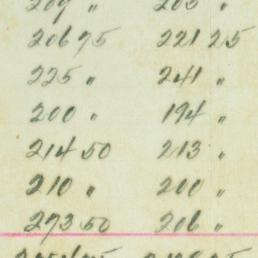 209 " 203 "
206 75 221 25
225 " 241 "
200 " 194 "
214 50 213 "
210 " 200 "
273 50 206 "